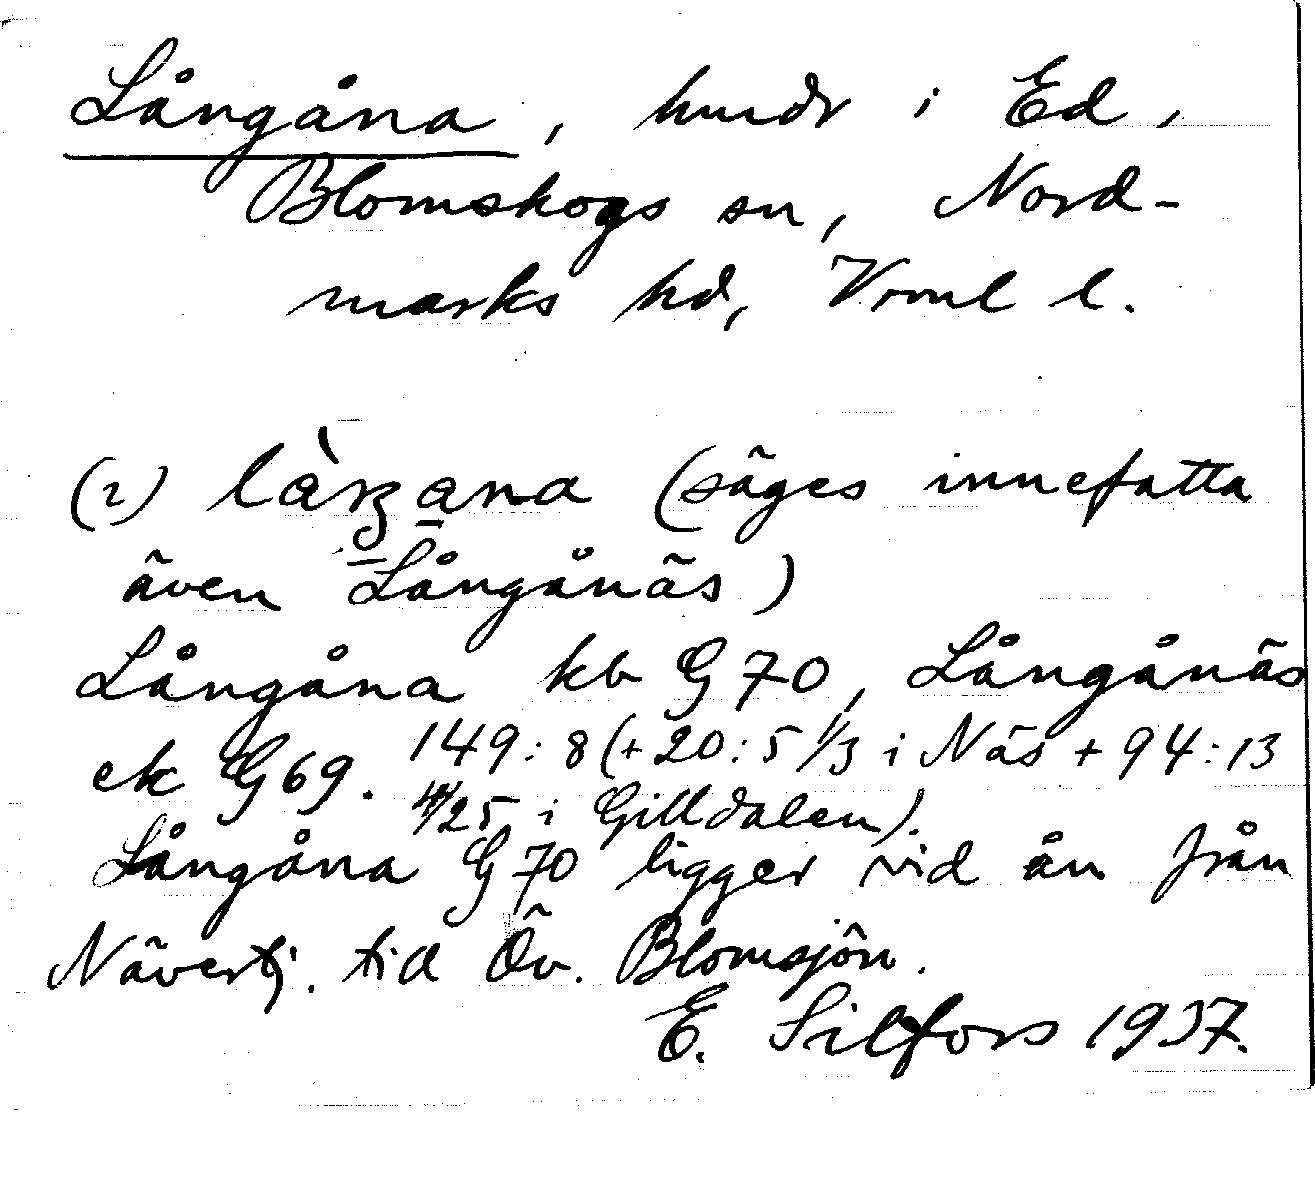 Långåna, hmdr i Ed,
Blomskogs sn, Nord-
marks hd, Vrml l.
(2) (säges innefatta
även Långånäs)
Långåna kb G 70, Långånäs
ek G 69. 149:8 (+ 20:5 1/3 i Näs + 94:13
i Gilldalen).
Långåna G 70 ligger vid ån från
Nävertj. till Öv. Blomsjön.
E. Silfors 1937.